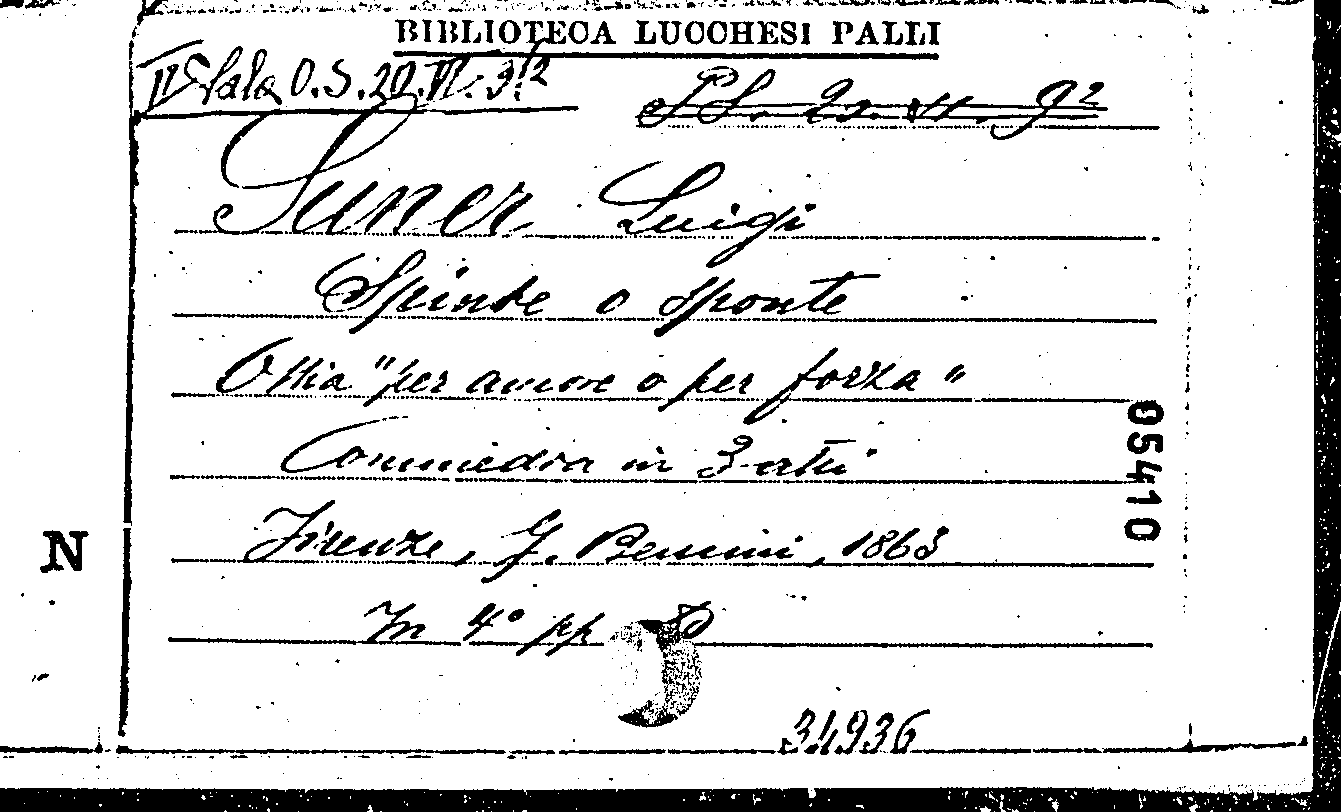 BIBLIOTECA LUCCHESI PALLI
II Sala O.S. 20.VI. 3/2
Suner Luigi
Spinte o sponte
Ossia "per amore o per forza"
Commedia in 3 atti
Firenze, G. Bennini, 1863
In 4° pp
34936
05410
N